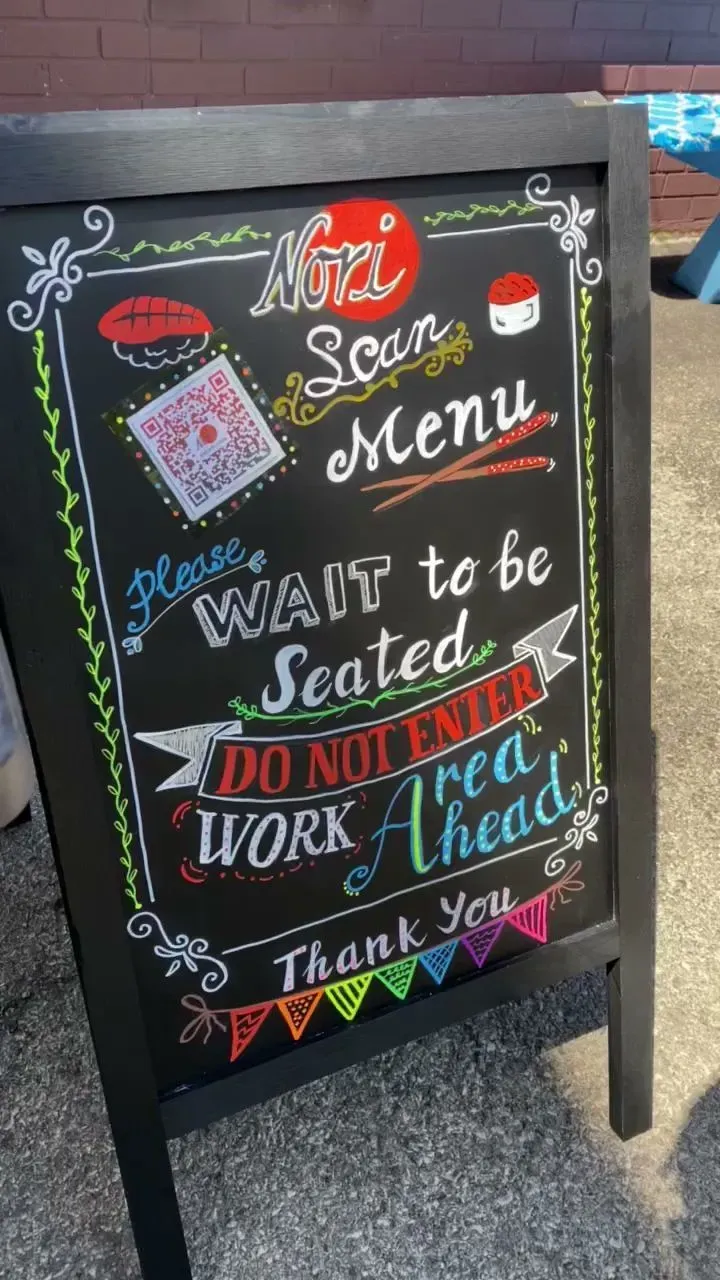 Nori
Scan
Menu
Please
WAIT to be
Seated
DO NOT ENTER
WORK Area
Ahead
Thank You